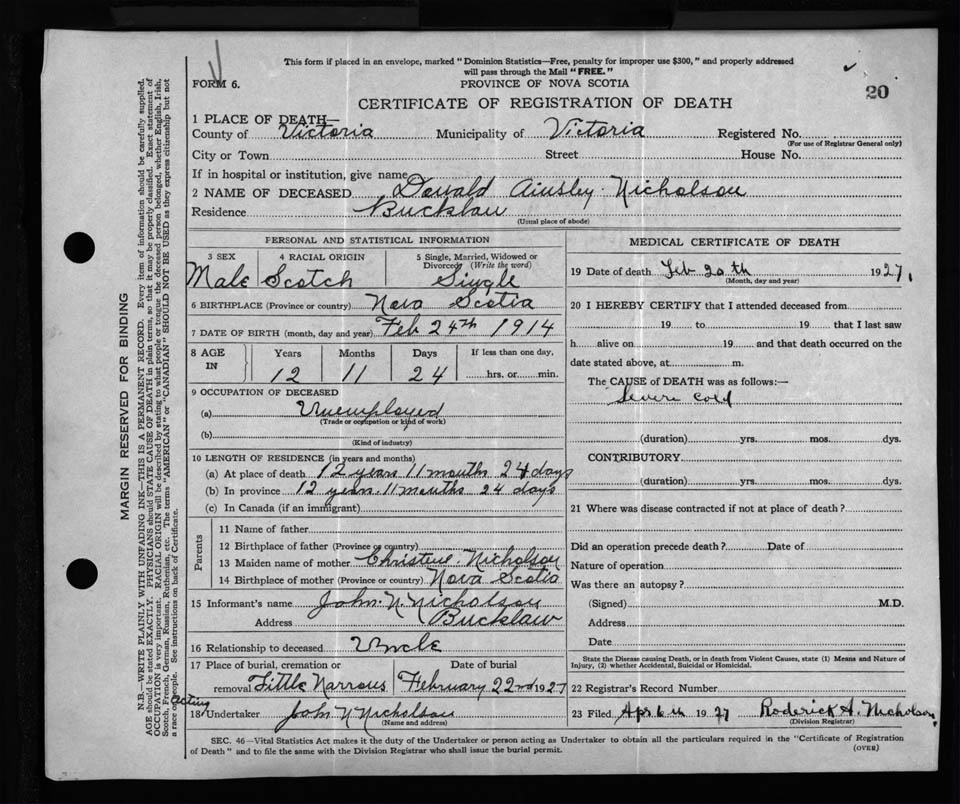 This form if placed in an envelope, marked "Dominion Statistics—Free, penalty for improper use $300," and properly addressed
will pass through the Mail "FREE."
FORM 6.
PROVINCE OF NOVA SCOTIA
20
CERTIFICATE OF REGISTRATION OF DEATH
1 PLACE OF DEATH—
County of Victoria Municipality of Victoria Registered No.
(For use of Registrar General only)
City or Town Street House No.
If in hospital or institution, give name
2 NAME OF DECEASED Donald Ainsley Nicholson
Residence Bucklaw
(Usual place of abode)
PERSONAL AND STATISTICAL INFORMATION
3 SEX 4 RACIAL ORIGIN 5 Single, Married, Widowed or
Divorced (Write the word)
Male Scotch Single
6 BIRTHPLACE (Province or country) Nova Scotia
7 DATE OF BIRTH (month, day and year) Feb 24th 1914
8 AGE Years Months Days If less than one day,
IN 12 11 24 hrs. or min.
9 OCCUPATION OF DECEASED
(a) Unemployed
(Trade or occupation or kind of work)
(b)
(Kind of industry)
10 LENGTH OF RESIDENCE (in years and months)
(a) At place of death 12 years 11 months 24 days
(b) In province 12 years 11 months 24 days
(c) In Canada (if an immigrant)
Parents
11 Name of father
12 Birthplace of father (Province or country)
13 Maiden name of mother Christine Nicholson
14 Birthplace of mother (Province or country) Nova Scotia
15 Informant's name John N. Nicholson
Address Bucklaw
16 Relationship to deceased Uncle
17 Place of burial, cremation or Date of burial
removal Little Narrows February 22nd 1927
acting
18 Undertaker John N Nicholson
(Name and address)
MEDICAL CERTIFICATE OF DEATH
19 Date of death Feb 20th 1927
(Month, day and year)
20 I HEREBY CERTIFY that I attended deceased from
19 to 19 that I last saw
h alive on 19 and that death occurred on the
date stated above, at m.
The CAUSE of DEATH was as follows:—
Severe cold
(duration) yrs. mos. dys.
CONTRIBUTORY
(duration) yrs. mos. dys.
21 Where was disease contracted if not at place of death?
Did an operation precede death? Date of
Nature of operation
Was there an autopsy?
(Signed) M.D.
Address
Date
State the Disease causing Death, or in death from Violent Causes, state (1) Means and Nature of
Injury, (2) whether Accidental, Suicidal or Homicidal.
22 Registrar's Record Number
23 Filed Apr 6th 1927 Roderick A. Nicholson
(Division Registrar)
SEC. 46—Vital Statistics Act makes it the duty of the Undertaker or person acting as Undertaker to obtain all the particulars required in the "Certificate of Registration
of Death" and to file the same with the Division Registrar who shall issue the burial permit.
(OVER)
MARGIN RESERVED FOR BINDING
N.B.—WRITE PLAINLY WITH UNFADING INK—THIS IS A PERMANENT RECORD. Every item of information should be carefully supplied.
AGE should be stated EXACTLY. PHYSICIANS should STATE CAUSE OF DEATH in plain terms, so that it may be properly classified. Exact statement of
OCCUPATION is very important. RACIAL ORIGIN will be described by stating to what people or tongue the deceased person belonged, whether English, Irish,
Scotch, French, German, Russian, Ruthenian, etc. The terms "AMERICAN" or "CANADIAN" SHOULD NOT BE USED as they express citizenship but not
a race or people. See instructions on back of Certificate.